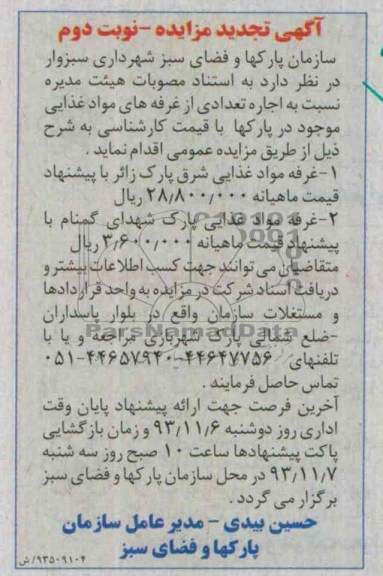 آگهی تجدید مزایده -نوبت دوم
سازمان پارکها و فضای سبز شهرداری سبزوار
در نظر دارد به استناد مصوبات هیئت مدیره
نسبت به اجاره تعدادی از غرفه های مواد غذایی
موجود در پارکها با قیمت کارشناسی به شرح
ذیل از طریق مزایده عمومی اقدام نماید .
۱-غرفه مواد غذایی شرق پارک زائر با پیشنهاد
قیمت ماهیانه ۲۸/۸۰۰/۰۰۰ ریال
۲-غرفه مواد غذایی پارک شهدای گمنام با
پیشنهاد قیمت ماهیانه ۳/۶۰۰/۰۰۰ ریال
متقاضیان می توانند جهت کسب اطلاعات بیشتر و
دریافت اسناد شرکت در مزایده به واحد قراردادها
و مستغلات سازمان واقع در بلوار پاسداران
-ضلع شمالی پارک شهربازی مراجعه و یا با
ParsNamadData
تلفنهای ۴۴۶۴۷۷۵۶-۴۴۶۵۷۹۴۰-۰۵۱
تماس حاصل فرمایند .
آخرین فرصت جهت ارائه پیشنهاد پایان وقت
اداری روز دوشنبه ۹۳/۱۱/۶ و زمان بازگشایی
پاکت پیشنهادها ساعت ۱۰ صبح روز سه شنبه
۹۳/۱۱/۷ در محل سازمان پارکها و فضای سبز
برگزار می گردد .
حسین بیدی - مدیر عامل سازمان
پارکها و فضای سبز
۹۳۵۰۹۱۰۴/ش